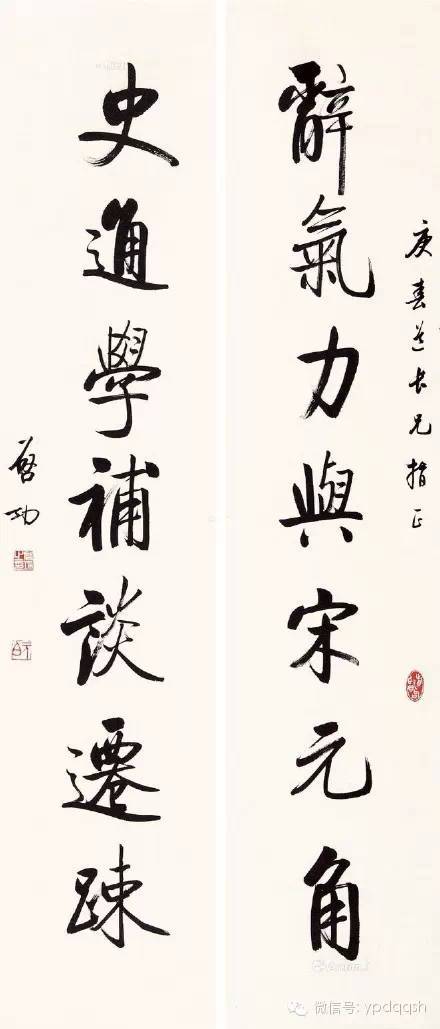 庚春道長兄指正
辭氣力與宋元角
史通學補談遷踈
啓功
微信号: ypdqqsh